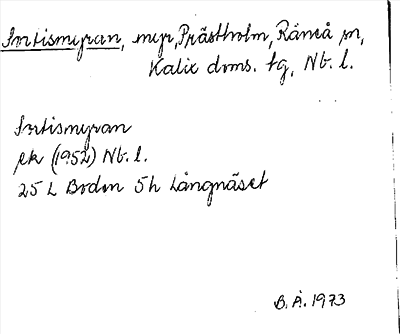 Intismyran, myr, Prästholm, Råneå sn,
Kalix doms. tg, Nb. l.
Intismyran
ek (1952) Nb. l.
25 L Boden 5h Långnäset
B. Å. 1973